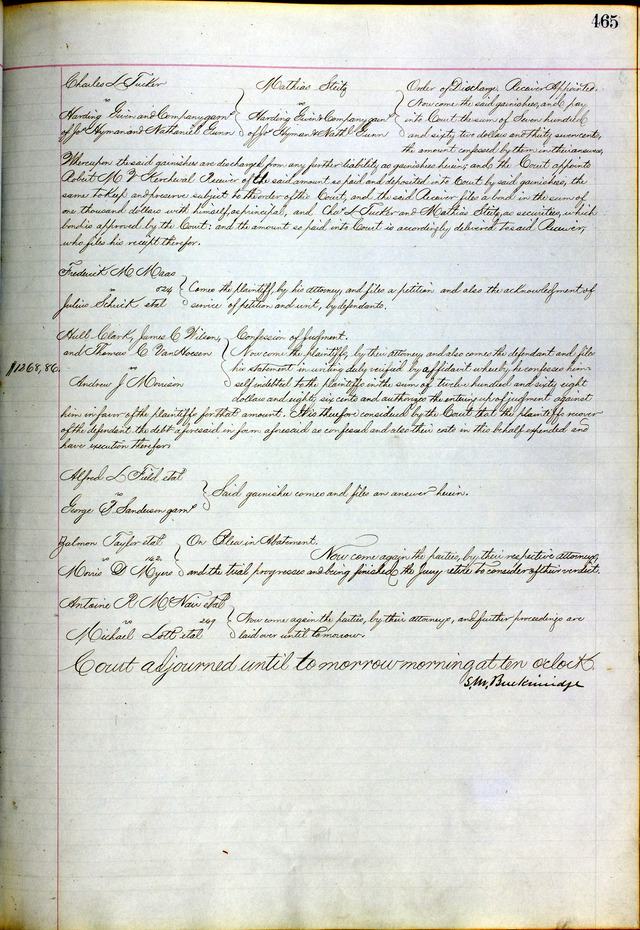 465
Charles L Tucker
vs
Harding Gwin and Company garn
of Jos Hyman and Nathaniel Gunn
Mathias Steitz
vs
Harding Gwin & Company garn
of Jos Hyman & Nathl Gunn
Order of Discharge, Receiver Appointed.
Now come the said garnishees, and pay
into Court the sum of Seven hundred
and sixty two dollars and thirty seven cents,
the amount confessed by them in their answer,
Whereupon the said garnishees are discharged from any further liability as garnishees herein; and the Court appoints
Robert M Kercheval Receiver of the said amount so paid and deposited into Court by said garnishees, the
same to keep and preserve subject to the order of this Court, and the said Receiver files a bond in the sum of
one thousand dollars with himself as principal, and Chas L Tucker and Mathias Steitz, as securities, which
bond is approved by the Court; and the amount so paid into Court is accordingly delivered to said Receiver,
who files his receipt therefor.
Frederick M Maas
vs 024
Julius Schuik etal
Comes the plaintiff, by his attorney, and files a petition and also the acknowledgment of
service of petition and writ, by defendants.
$1268,86.
Hull Clark, James C Wilson,
and Thomas C Van Hoesen
vs
Andrew J Morrison
Confession of Judgment.
Now come the plaintiffs, by their attorney and also comes the defendant and files
his statement in writing duly verified by affidavit whereby he confesses him-
self indebted to the plaintiffs in the sum of twelve hundred and sixty eight
dollars and eighty six cents and authorizes the entering up of judgment against
him in favor of the plaintiffs for that amount. It is therefore considered by the Court that the plaintiffs recover
of the defendant the debt aforesaid in form aforesaid as confessed and also their costs in this behalf expended and
have execution therefor.
Alfred L Field etal
vs
George T Sanderson garn
Said garnishee comes and files an answer herein.
Zalmon Taylor etal
vs 142.
Morris D Myers
On Plea in Abatement.
Now come again the parties, by their respective attorneys,
and the trial progresses and being finished, the Jury retire to consider of their verdict.
Antoine R McNair etal
vs 209
Michael Loth etal
Now come again the parties, by their attorneys, and further proceedings are
laid over until tomorrow.
Court adjourned until tomorrow morning at ten oclock
S.M. Breckinridge